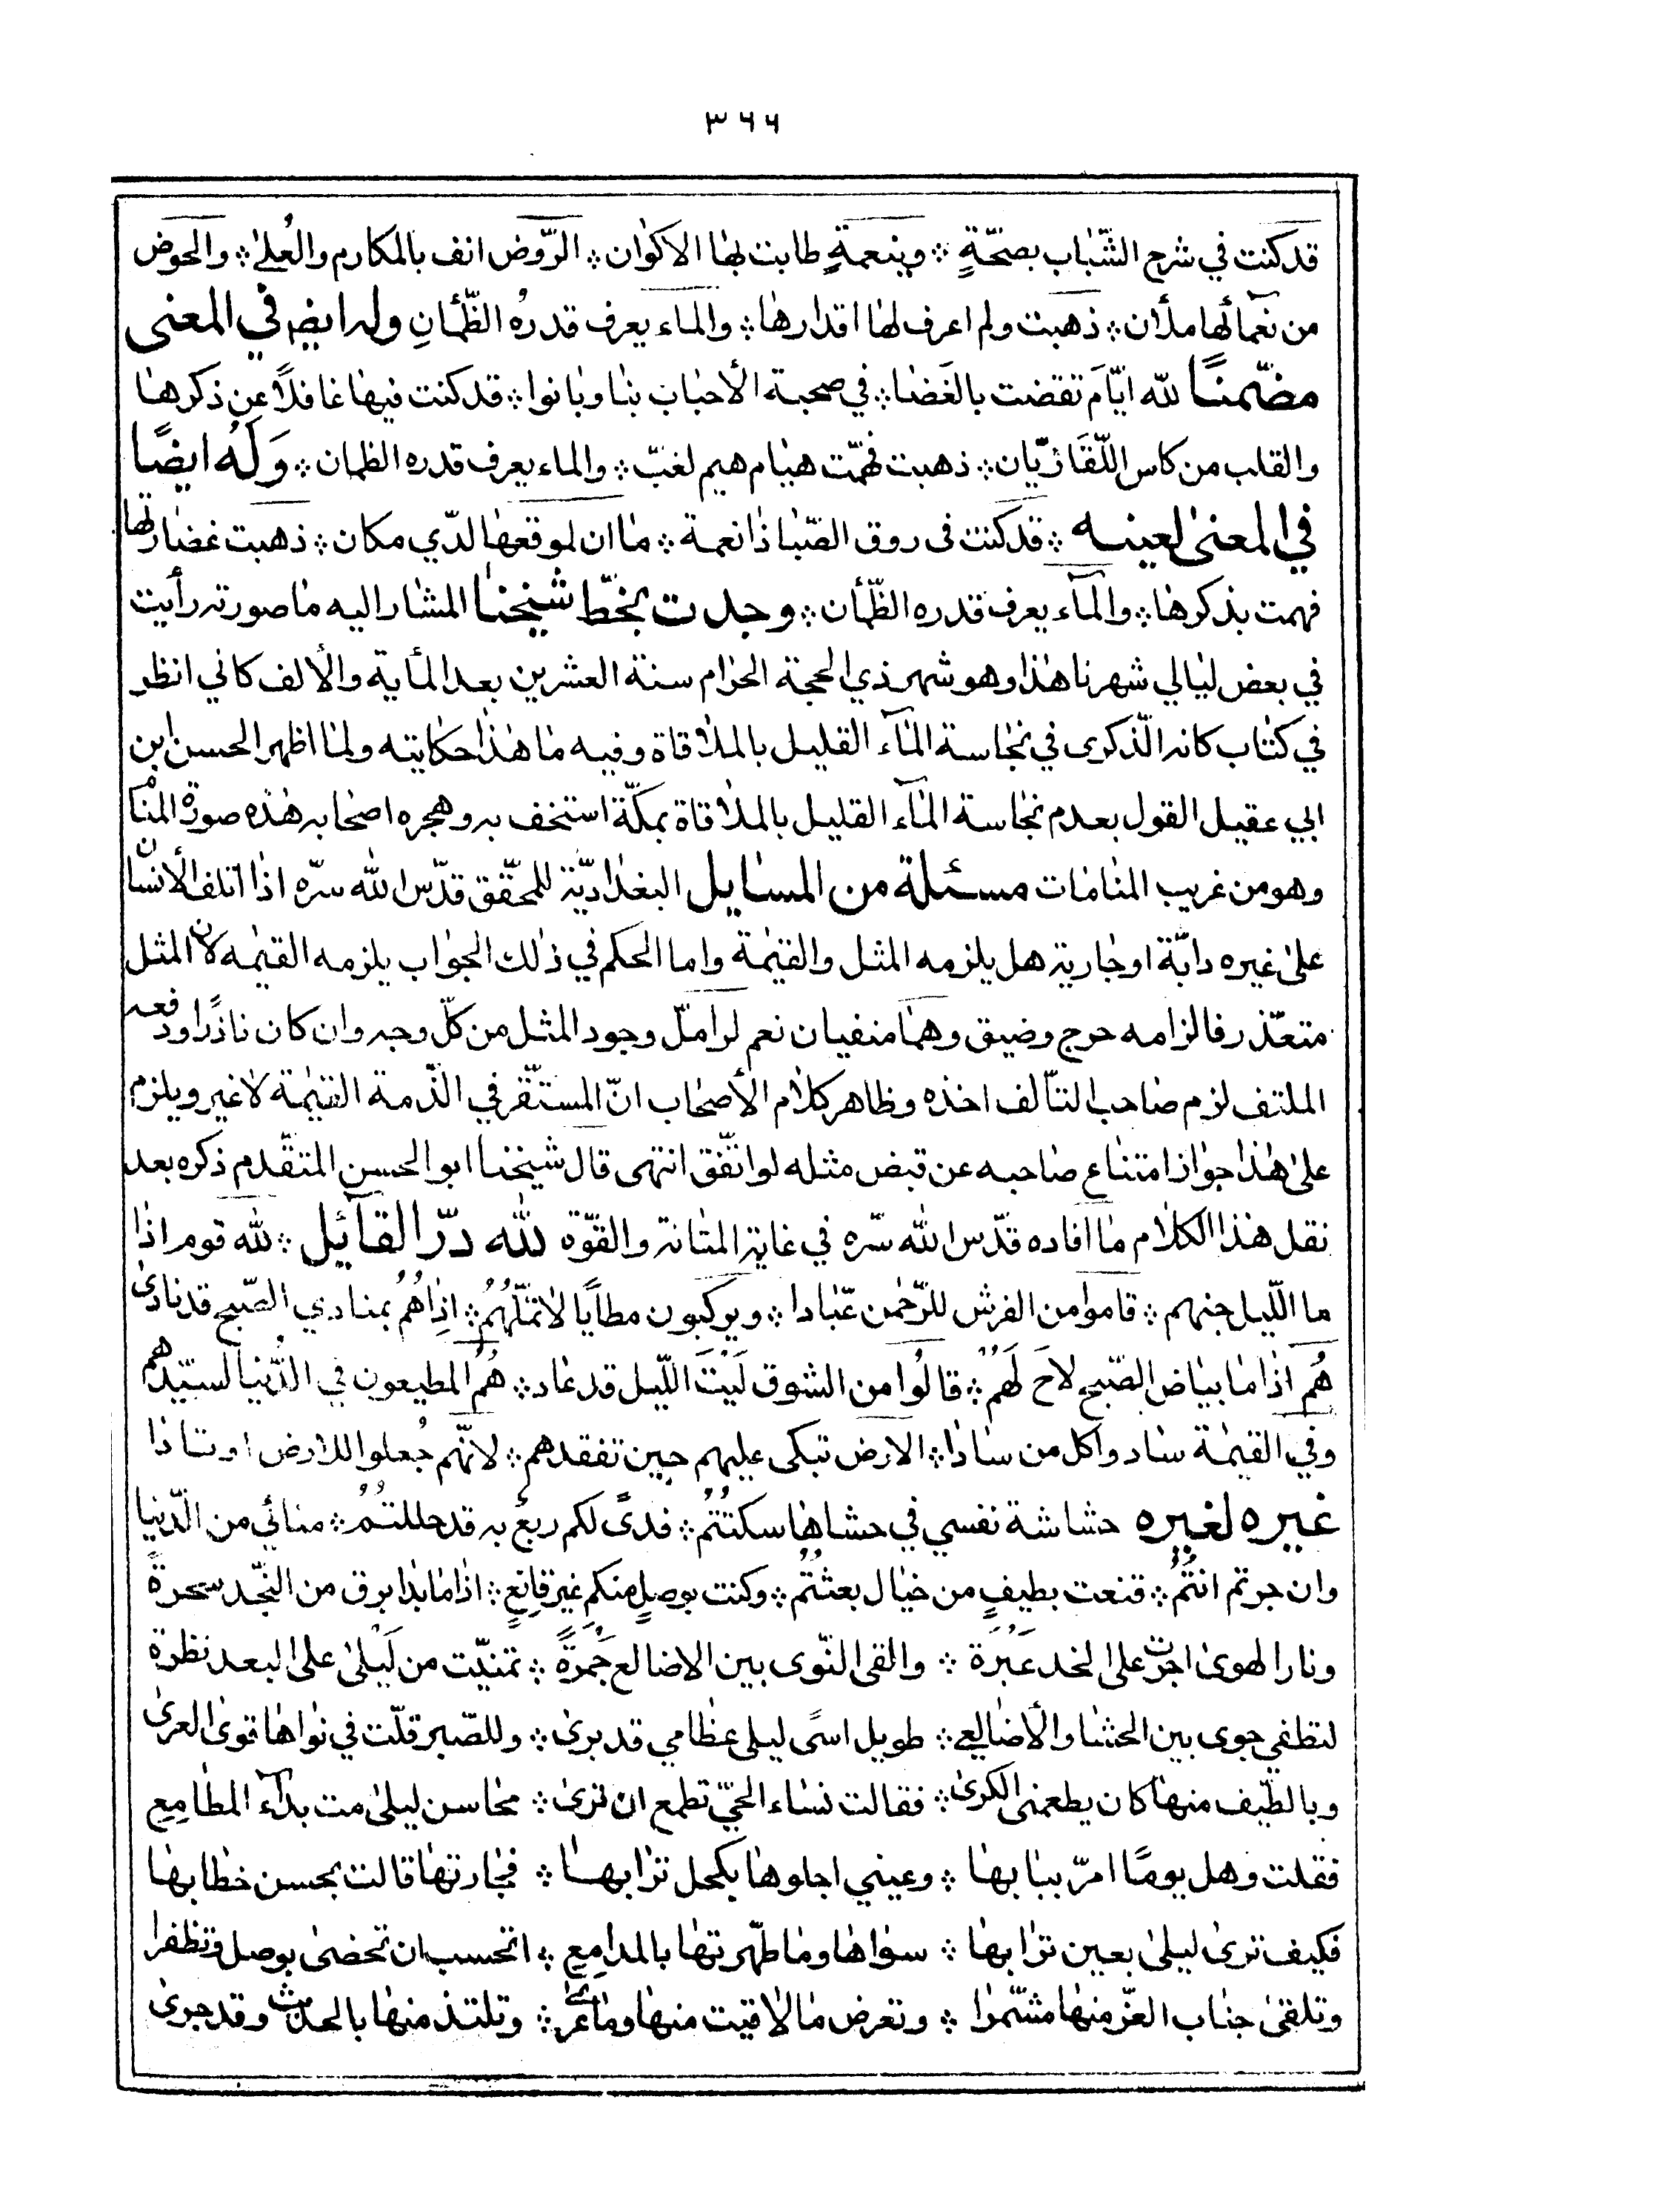 ٣٦٦
قد كنت في شرح الشّباب بصحّةٍ ؞ وبنعمةٍ طابت لها الاكوان ؞ الرّوض انف بالمكارم والعُلىٰ ؞ والحوض
من نعمآئها ملأن ؞ ذهبت ولم اعرف لها اقدارها ؞ والماء يعرف قدرهُ الظّمأنِ وله ايضا في المعنى
مضّمنًا لله ايّام تقضت بالغَضا ؞ في صحبة الأحباب بنا وبانوا ؞ قد كنت فيها غافلًا عن ذكرها
والقلب من كاس اللّقَا ريّان ؞ ذهبت فهّمت هيام هيم لغبّ ؞ والماء يعرف قدره الظمان ؞ وَلَهُ ايضًا
في المعنىٰ لعينه ؞ قد كنت فى روق الصّبا ذا نعمة ؞ ما ان لموقعها لدّي مكان ؞ ذهبت غضارتها
فهمت بذكرها ؞ والمآء يعرف قدره الظّمأن ؞ وجدت بخطّ شيخنا المشار اليه ما صورته رأيت
في بعض ليالي شهرنا هذا وهو شهر ذي الحجة الحرام سنة العشرين بعد المأية والألف كاني انظر
في كتاب كانه الّذكرى في نجاسة المآء القليل بالملاقاة وفيه ما هذا حكايته ولما اظهر الحسن ابن
ابي عقيل القول بعدم نجاسة المآء القليل بالملاقاة بمكّة استخف به وهجره اصحابه هذه صورة المنام
وهو من غريب المنامات مسئلة من المسايل البغداديّة للمحّقق قدّس الله سرّه اذا اتلف الأنسان
علىٰ غيره دابّة او جارية هل يلزمه المثل والقيمة واما الحكم في ذلك الجواب يلزمه القيمه لان المثل
متعذّر فالزامه حرج وضيق وهما منفيان نعم لو امل وجود المثل من كلّ وجه وان كان نادرًا ودفعه
المتلف لزم صاحب التآلف اخذه وظاهر كلام الأصحاب انّ المستّقر في الذّمة القيمة لا غير ويلزم
علىٰ هذا جواز امتناع صاحبه عن قبض مثله لو اتّفق انتهى قال شيخنا ابو الحسن المتقّدم ذكره بعد
نقل هذا الكلام ما افاده قدّس الله سّره في غاية المتانة والقوّة لله درّ القآئل ؞ لله قوم اذا
ما اللّيل جنهم ؞ قاموا من الفرش للرّحمن عّبادا ؞ ويركبون مطايًا لا تملّهُمُ ؞ اذِا هُمُ بمنادي الصّبح قد نادىٰ
هُم اذا ما بياض الصّبح لاحَ لَهُم ؞ قالُوا من الشوق لَيْتَ اللّيل قد عاد ؞ هُمُ المطيعون في الدُّنيا لسيّدهم
وفي القيمة ساد واكل من سادا ؞ الارض تبكى عليهم حين تفقدهم ؞ لانّهم جُعلوا للارض اوتادا
غيره لغيره حشاشة نفسي في حشاها سكنتُمُ ؞ فدىً لكم ربعٌ به قد حللتُمُ ؞ منائي من الّدنيا
وان جرتم انتُمُ ؞ قنعت بطيفٍ من خيال بعثتُمُ ؞ وكنت بوصلٍ منكمِ غير قانِعٍ ؞ اذا ما بدا برق من النّجد سحرةً
ونار الهوىٰ اجرت على الخد عَبْرَة ؞ والقى النّوى بين الاضالع جَمرَةً ؞ تمنيّت من لَيْلىٰ على البعد نظرة
لتطفي جوى بين الحشا والأضالع ؞ طويل اسىً ليلى عظامي قد برىٰ ؞ وللصّبر قلّت في نواها قوىٰ العرىٰ
وبالطّيف منها كان يطعمنى الكرىٰ ؞ فقالت نساء الحيّ تطمع ان ترىٰ ؞ محاسن ليلىٰ مت بدآء المطامِع
فقلت وهل يومًا امرّ ببابها ؞ وعيني اجلوها بكحل ترابها ؞ فجارتها قالت بحسن خطابها
فكيف ترىٰ ليلىٰ بعين ترىٰ بها ؞ سواها وما طهّرتها بالمدامِعِ ؞ اتحسب ان تحضىٰ بوصل وتظفرا
وتلقىٰ جناب العزّ منها مشّمرا ؞ وتعرض ما لاقيت منها وما عرىٰ ؞ وتلتذ منها بالحديث وقد جرىٰ